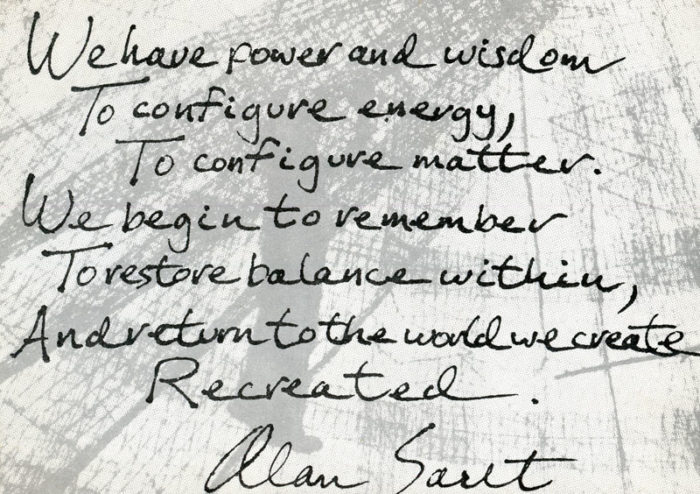 We have power and wisdom
To configure energy,
To configure matter.
We begin to remember
To restore balance within,
And return to the world we create
Recreated.
Alan Saret